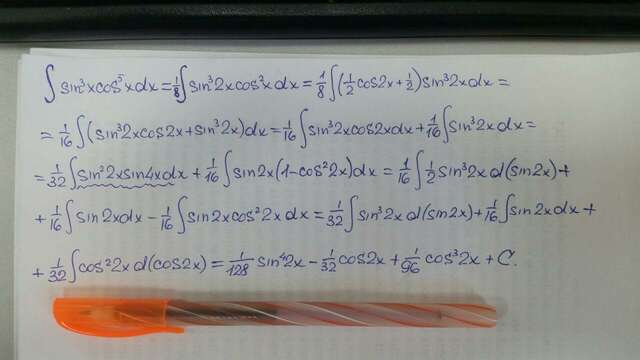 ∫ sin³x cos⁵x dx = 1/8 ∫ sin³2x cos²x dx = 1/8 ∫ (1/2 cos2x + 1/2) sin³2x dx =
= 1/16 ∫ (sin³2x cos2x + sin³2x) dx = 1/16 ∫ sin³2x cos2x dx + 1/16 ∫ sin³2x dx =
= 1/32 ∫ sin²2x sin4x dx + 1/16 ∫ sin2x (1 - cos²2x) dx = 1/16 ∫ 1/2 sin³2x d(sin2x) +
+ 1/16 ∫ sin2x dx - 1/16 ∫ sin2x cos²2x dx = 1/32 ∫ sin³2x d(sin2x) + 1/16 ∫ sin2x dx +
+ 1/32 ∫ cos²2x d(cos2x) = 1/128 sin⁴2x - 1/32 cos2x + 1/96 cos³2x + C.